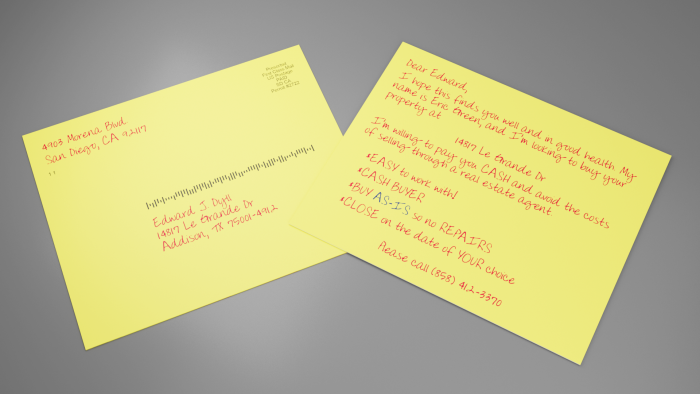 4903 Morena Blvd
San Diego, CA 92117
Edward J. Dyll
14817 Le Grande Dr
Addison, TX 75001-4912
Dear Edward,
I hope this finds you well and in good health. My
name is Eric Green, and I'm looking to buy your
property at
14817 Le Grande Dr
I'm willing to pay you CASH and avoid the costs
of selling through a real estate agent.
*EASY to work with!
*CASH BUYER
*BUY AS-IS so no REPAIRS
*CLOSE on the date of YOUR choice
Please call (858) 412-3370